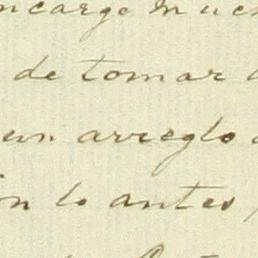 encargo muc
de tomar a
un arreglo
ón lo antes